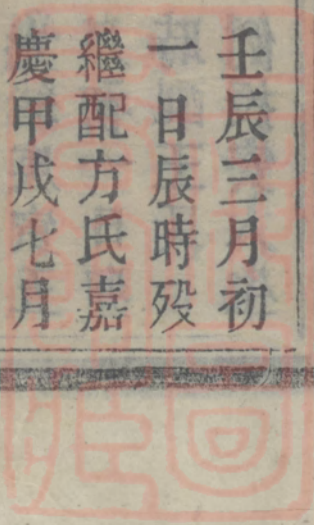 壬辰三月初
一日辰時歿
繼配方氏嘉
慶甲戌七月